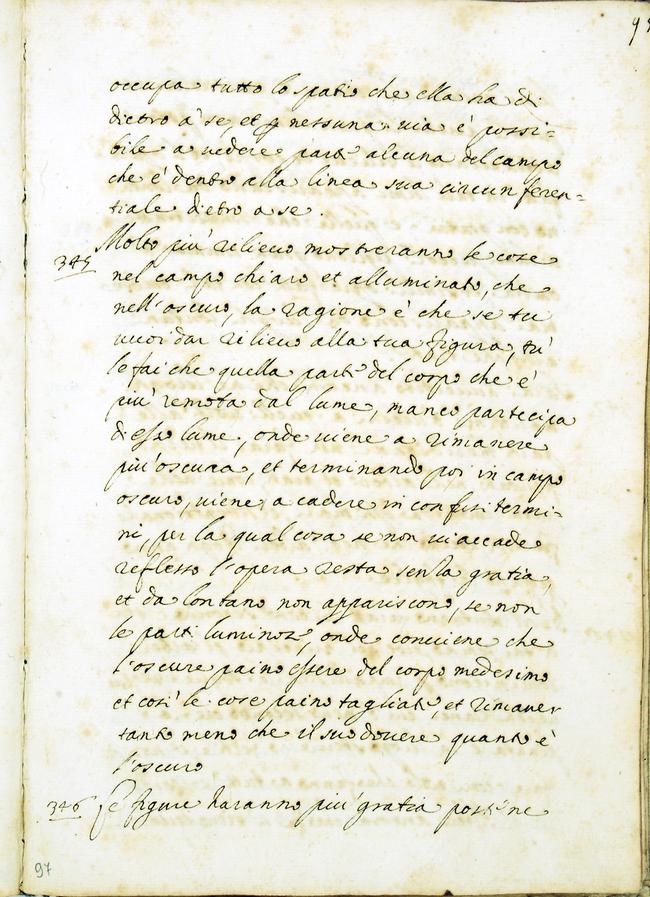 occupa tutto lo spatio che ella ha di
dietro a' se, et p nessuna uia è possi=
bile a uedere parte alcuna del campo
che è dentro alla linea sua circunferen=
tiale dietro a se.
345 Molto piu' rilieuo mostreranno le cose
nel campo chiaro et alluminato, che
nell'oscuro, la ragione è che se tu
uuoi dar rilieuo alla tua figura, tu'
le fai che quella parte del corpo che è
piu' remota dal lume, manco partecipa
di esso lume, onde uiene a rimanere
piu' oscura, et terminando poi in campo
oscuro, uiene a cadere in confusi termi=
ni, per la qual cosa se non ui accade
reflesso l'opera resta senza gratia,
et da lontano non appariscono, se non
le parti luminose, onde conuiene che
l'oscure paino essere del corpo medesimo
et cosi' le cose paino tagliate, et rimaner
tanto meno che il suo douere quanto è
l'oscuro
346 Le figure haranno piu' gratia poste ne
97